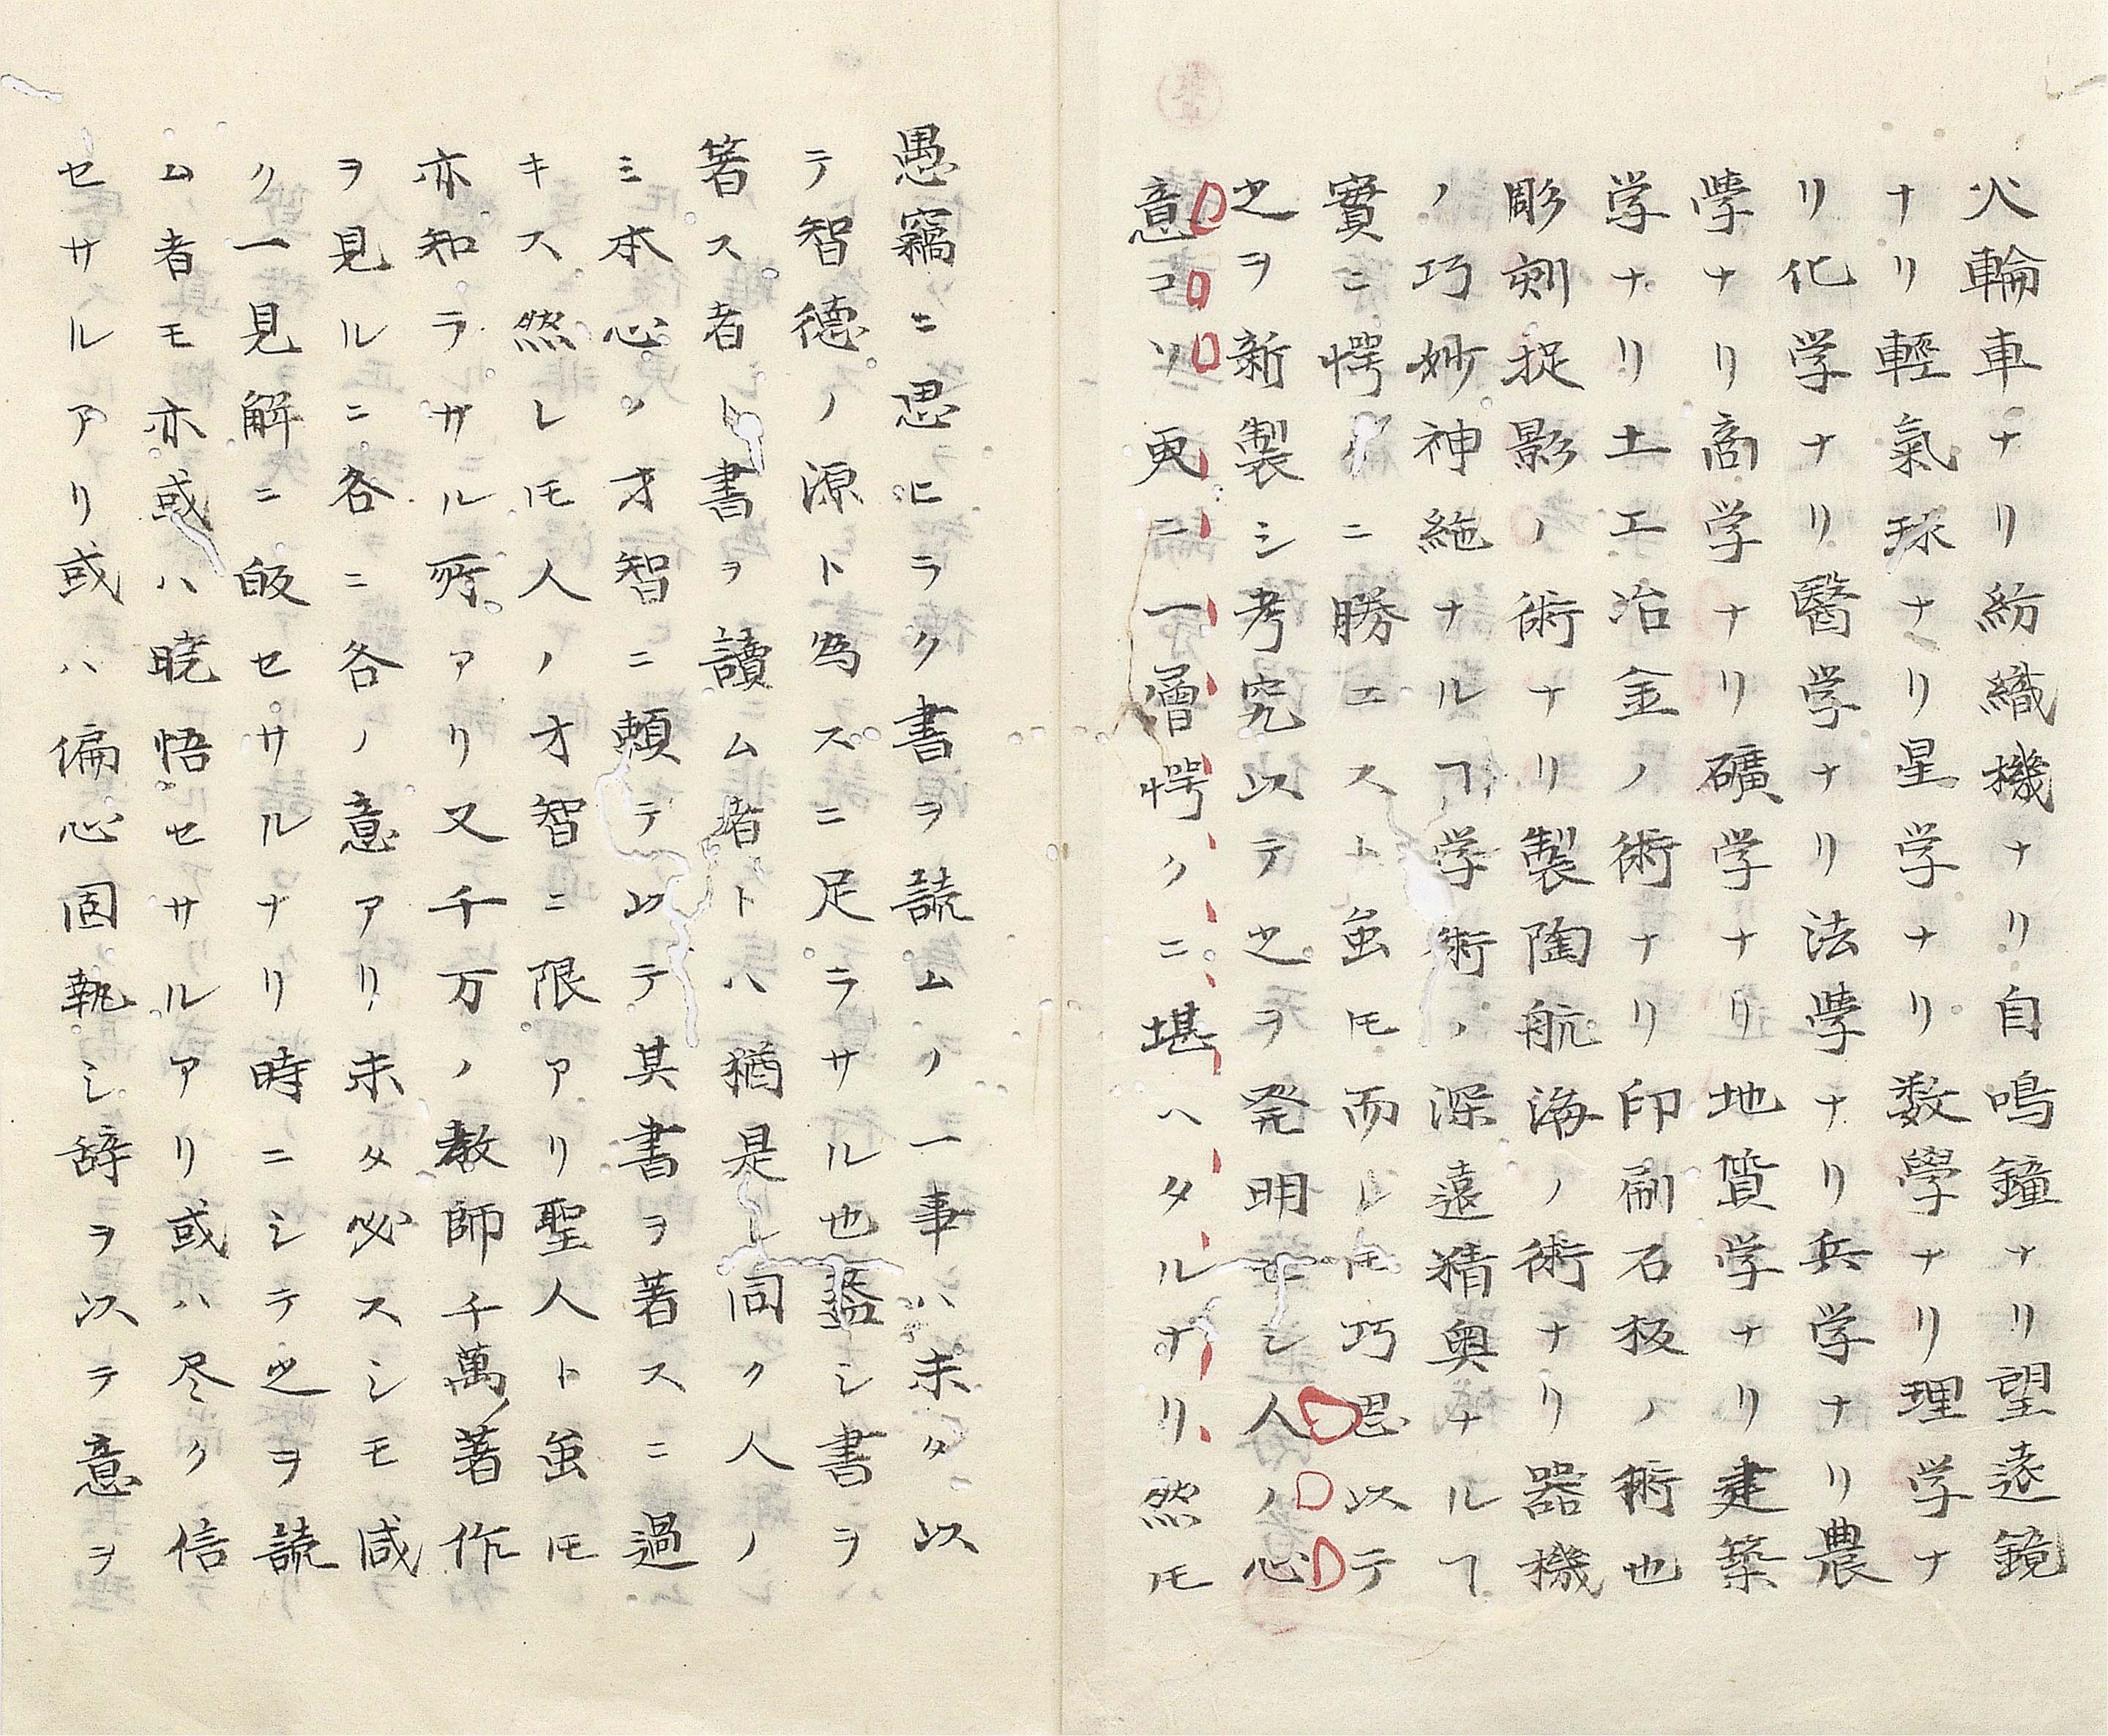 火輪車ナリ紡織機ナリ自鳴鐘ナリ望遠鏡
ナリ輕氣球ナリ星学ナリ数學ナリ理学ナ
リ化学ナリ醫学ナリ法學ナリ兵学ナリ農
學ナリ商学ナリ礦学ナリ地質学ナリ建築
学ナリ土工冶金ノ術ナリ印刷石板ノ術也
彫刻捉影ノ術ナリ製陶航海ノ術ナリ器機
ノ巧妙神絶ナルヿ学術ノ深遠精奥ナルヿ
實ニ愕クニ勝エスト虽モ而レ𪜈巧思以テ
之ヲ新製シ考究以テ之ヲ発明セシ人ノ心
意コソ更ニ一層愕クニ堪ヘタルナリ然𪜈
愚竊ニ思ヒラク書ヲ読ムノ一事ハ未タ以
テ智德ノ源ト為スニ足ラサル也蓋シ書ヲ
著ス者ト書ヲ讀ム者トハ猶是レ同ク人ノ
ミ本心ノ才智ニ頼テ以テ其書ヲ著スニ過
キス然レ𪜈人ノ才智ニ限アリ聖人ト虽𪜈
亦知ラザル所アリ又千万ノ教師千萬著作
ヲ見ルニ各ニ各ノ意アリ未タ必スシモ咸
ク一見解ニ皈セサルナリ時ニシテ之ヲ読
ム者モ亦或ハ暁悟セサルアリ或ハ尽ク信
セサルアリ或ハ偏心固執シ辞ヲ以テ意ヲ